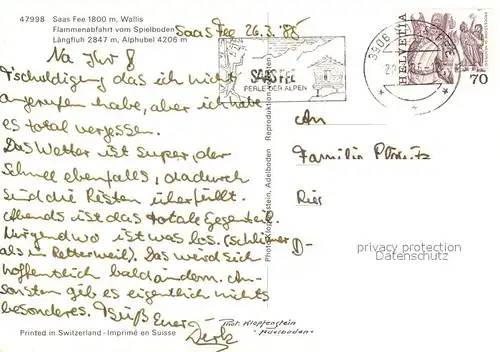 47998 Saas Fee 1800 m, Wallis
Flammenabfahrt vom Spielboden
Längfluh 2847 m, Alphubel 4206 m
Saas Fee 26.3.85
Na Ihr 8
Tschuldigung das ich nicht
angerufen habe, aber ich habe
es total vergessen.
Das Wetter ist super, der
Schnee ebenfalls, dadurch
sind die Pisten überfüllt.
Abends ist das totale Gegenteil.
Nirgendwo ist was los. (schlimmer
als in Petterweil). Das wird sich
hoffentlich bald ändern. An-
sonsten gib es eigentlich nichts
besonderes. Grüß Euer
Dirk
SAAS FEE
PERLE DER ALPEN
3906
HELVETIA
70
Reproduktion verboten
Klopfenstein, Adelboden
An
Familie
D-
privacy protection
Datenschutz
Phot. Klopfenstein
Adelboden
Printed in Switzerland - Imprimé en Suisse